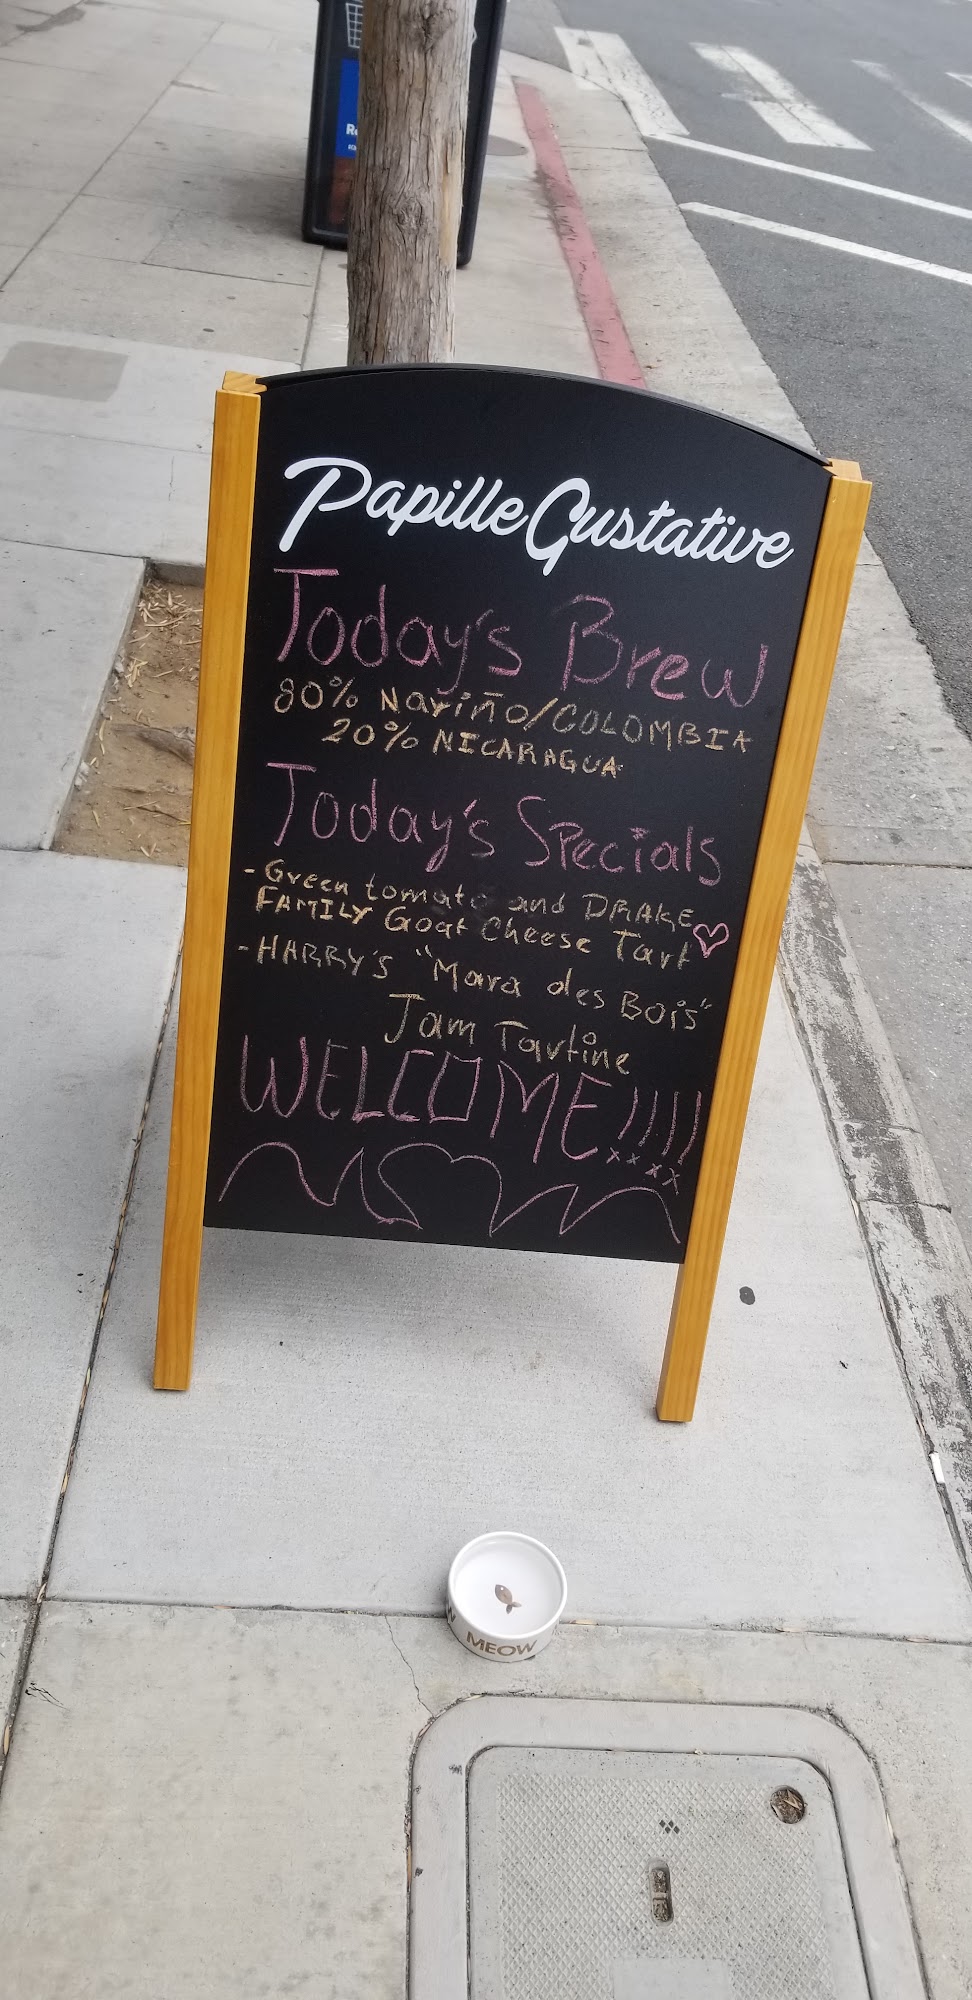 Papille Gustative
Today's Brew
80% Nariño/COLOMBIA
20% NICARAGUA
Today's Specials
- Green tomato and DRAKE
FAMILY Goat Cheese Tart
- HARRY'S "Mara des Bois"
Jam Tartine
WELCOME!!!!
xxxx
MEOW